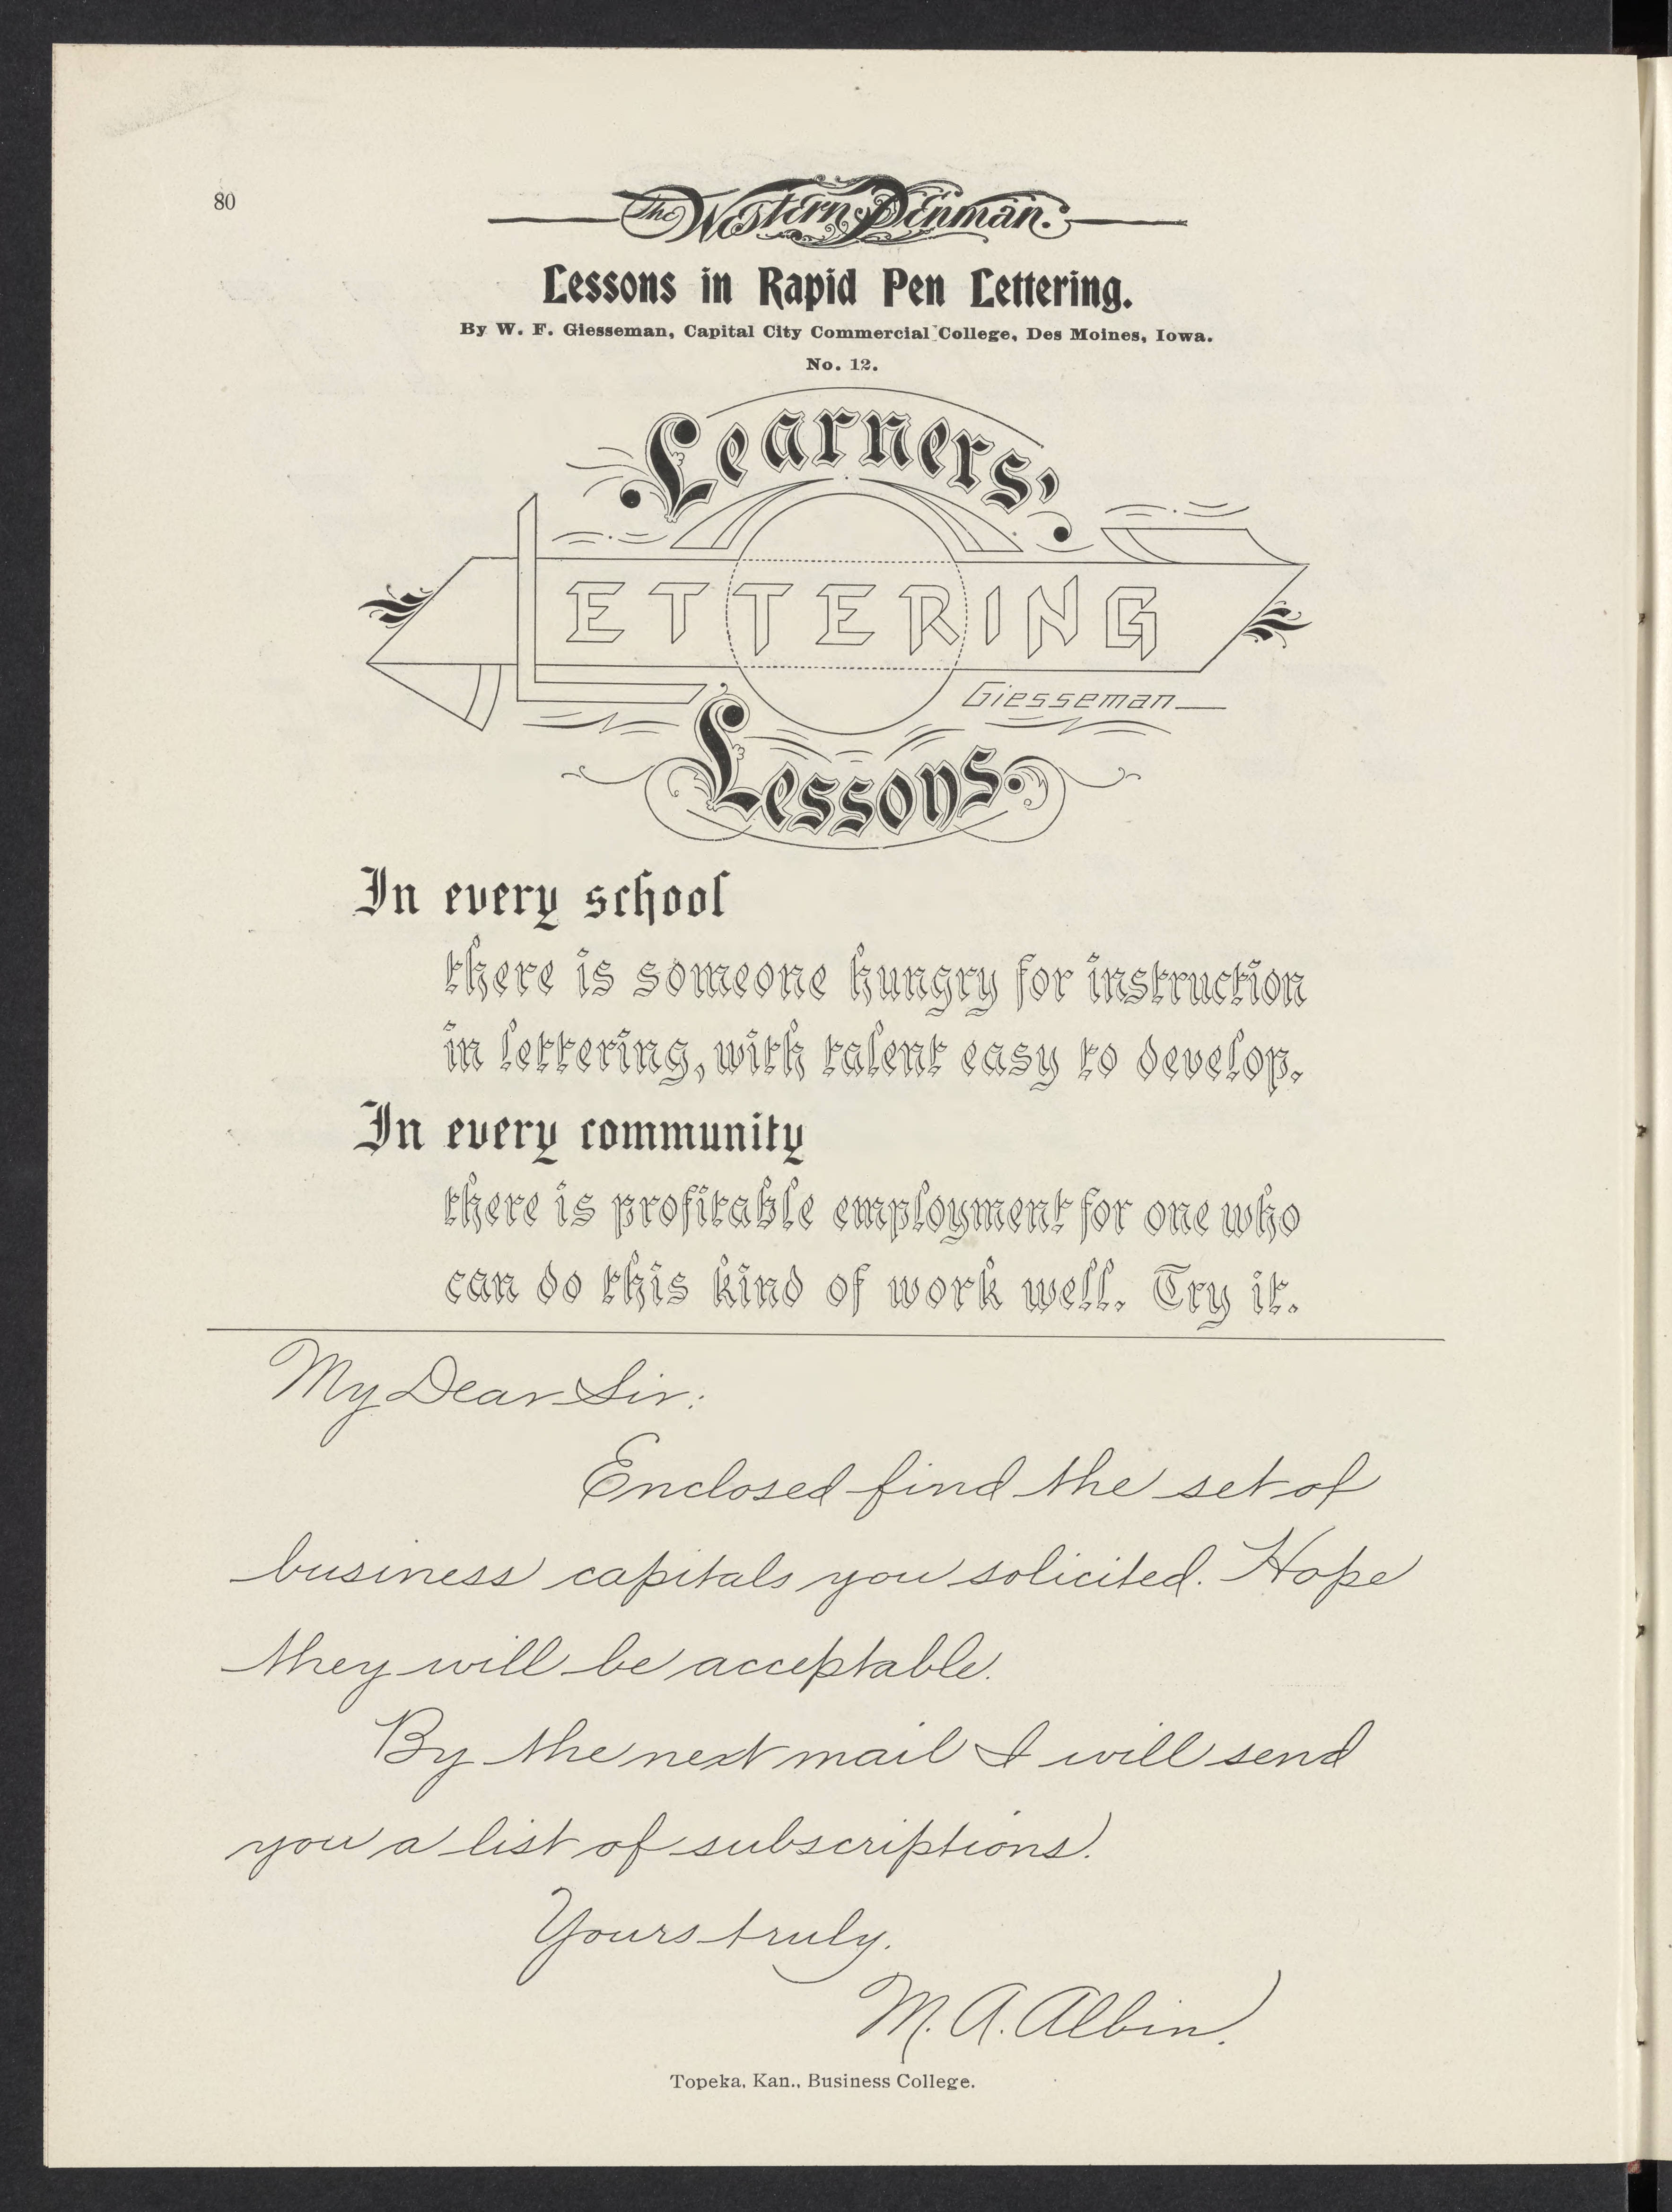 80
The Western Penman.
Lessons in Rapid Pen Lettering.
By W. F. Giesseman, Capital City Commercial College, Des Moines, Iowa.
No. 12.
Learners,
LETTERING
Giesseman
Lessons.
In every school
there is someone hungry for instruction
in lettering, with talent easy to develop.
In every community
there is profitable employment for one who
can do this kind of work well. Try it.
My Dear Sir:
Enclosed find the set of
business capitals you solicited. Hope
they will be acceptable.
By the next mail I will send
you a list of subscriptions.
Yours truly.
M. A. Albin.
Topeka, Kan., Business College.